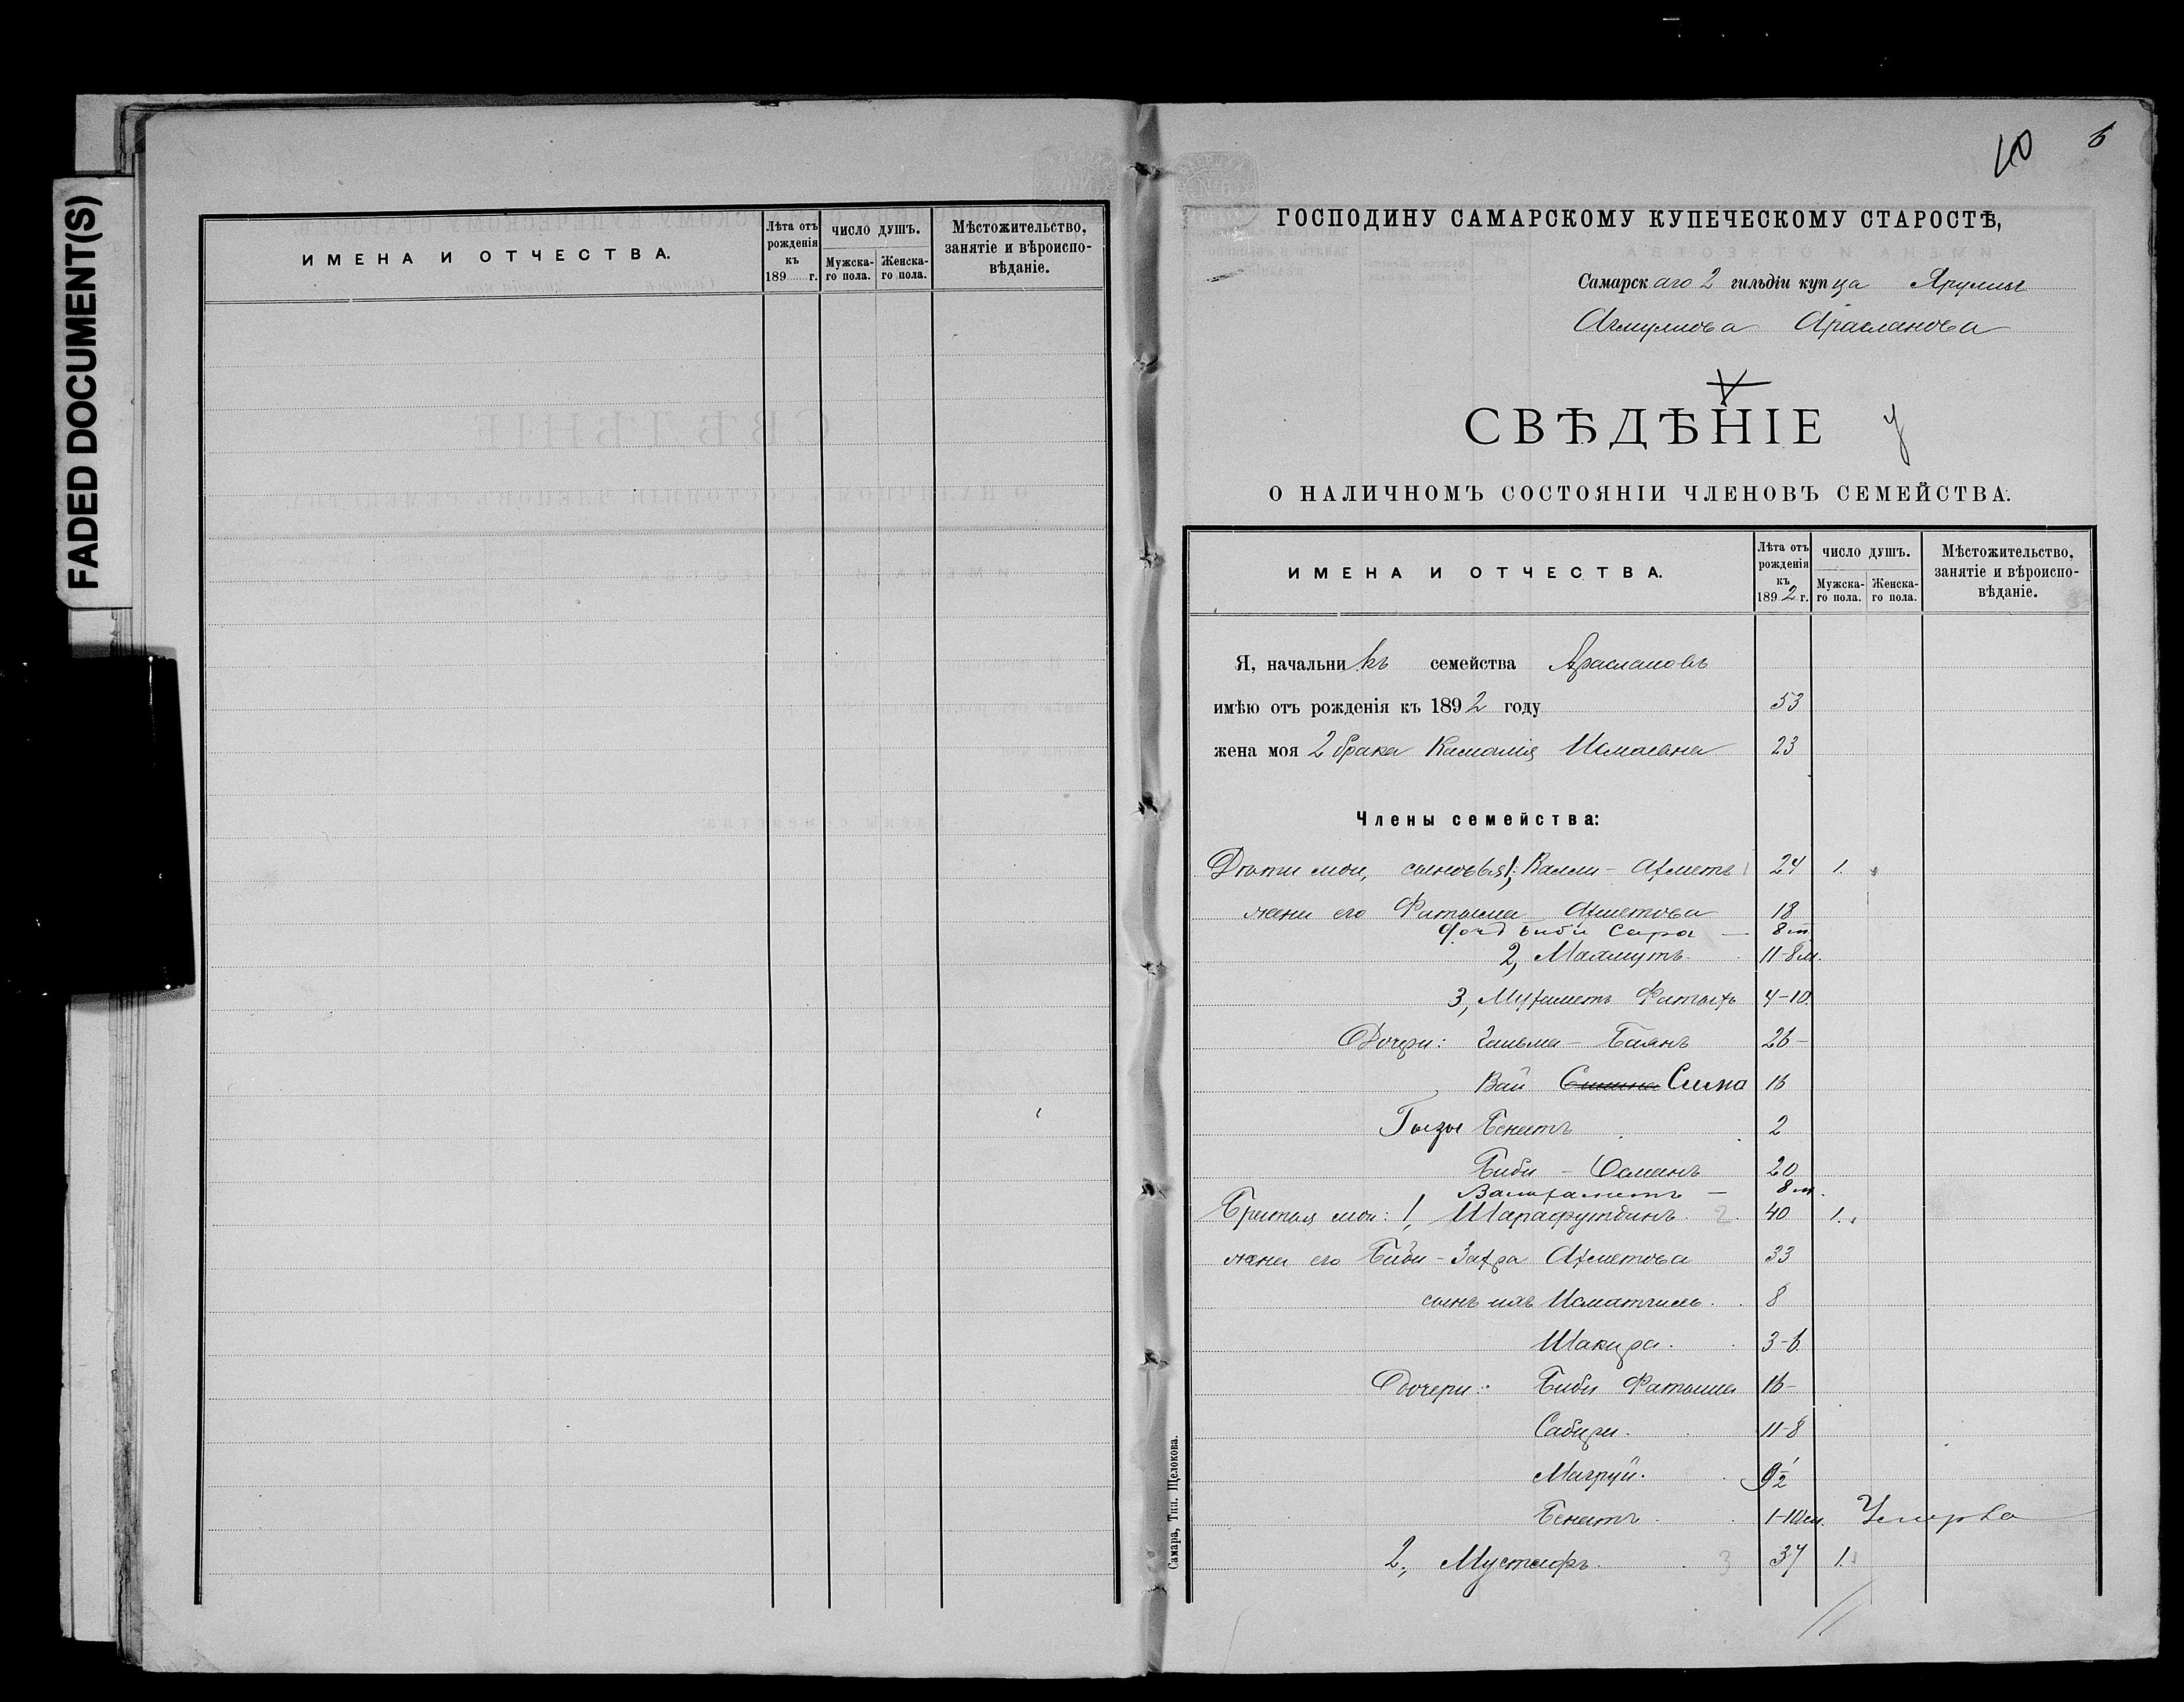 FADED DOCUMENT(S)
ИМЕНА И ОТЧЕСТВА.
Лѣта отъ рожденія къ 189 г.
ЧИСЛО ДУШЪ.
Мужска-го пола.
Женска-го пола.
Мѣстожительство, занятіе и вѣроиспо-вѣданіе.
10 6
ГОСПОДИНУ САМАРСКОМУ КУПЕЧЕСКОМУ СТАРОСТѢ,
Самарскаго 2 гильдіи купца
Арасланова
СВѢДѢНІЕ
О НАЛИЧНОМЪ СОСТОЯНІИ ЧЛЕНОВЪ СЕМЕЙСТВА.
ИМЕНА И ОТЧЕСТВА.
Лѣта отъ рожденія къ 1892 г.
ЧИСЛО ДУШЪ.
Мужска-го пола.
Женска-го пола.
Мѣстожительство, занятіе и вѣроиспо-вѣданіе.
Я, начальникъ семейства Араслановъ
имѣю отъ рожденія къ 1892 году 53
жена моя 2 брака 23
Члены семейства:
Дѣти мои, сыновья: 1, Валли-Ахметъ 24 1.
жена его Фатыма Ахметова 18
дочь Биби Сара — 8 м
2, Махмутъ. 11-8 м.
3, Мухаметъ Фатыхъ 4-10.
Дочери: Гильма-Баянъ 26-
Бай Сима 16
Гызы Бенатъ 2
Биби - 20
Валиахметъ — 8 м.
Братья мои: 1, Шарафутдинъ. 2 40 1.
жена его Биби-Захра Ахметова 33
сынъ ихъ 8
Шакира. 3-6
Дочери: Биби Фатыма 16-
Сабира. 11-8
Магруй. 9 1/2
Бенатъ 1-10 м. Умерла
2, Мустафъ. 3 37 1.
Самара, Тип. Щелокова.